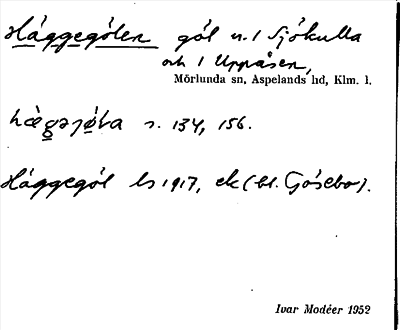 Häggegölen göl n. / Sjökulla
och / Uppåsen,
Mörlunda sn, Aspelands hd, Klm. l.
s. 134, 156.
Häggegöl ls 1917, ek (bl. Gösebo).
Ivar Modéer 1952